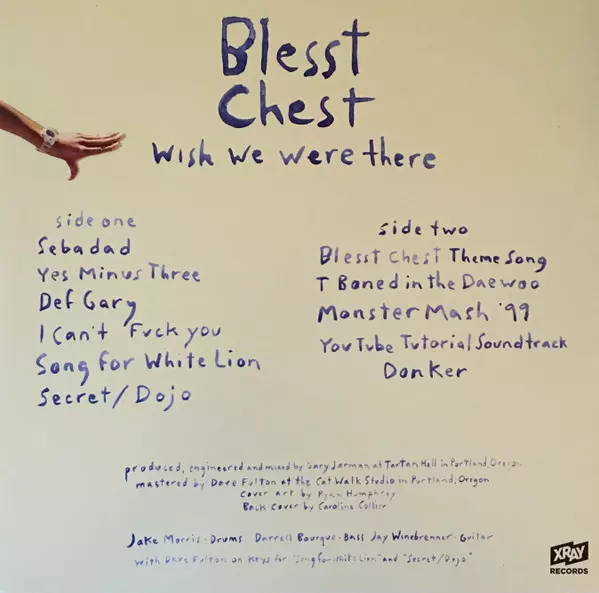 Blesst
Chest
Wish We Were there
side one
Sebadad
Yes Minus Three
Def Gary
I Can't Fvck you
Song for White Lion
Secret/Dojo
side two
Blesst Chest Theme Song
T Boned in the Daewoo
Monster Mash '99
YouTube Tutorial Soundtrack
Donker
produced, engineered and mixed by Gary Jarman at Tartan Hell in Portland, Oregon
mastered by Dave Fulton at the Cat Walk Studio in Portland, Oregon
Cover art by Ryan Humphrey
Back Cover by Caroline Collier
Jake Morris · Drums Darrell Bourque · Bass Jay Winebrenner · Guitar
with Dave Fulton on Keys for "Song for White Lion" and "Secret/Dojo"
XRAY
RECORDS